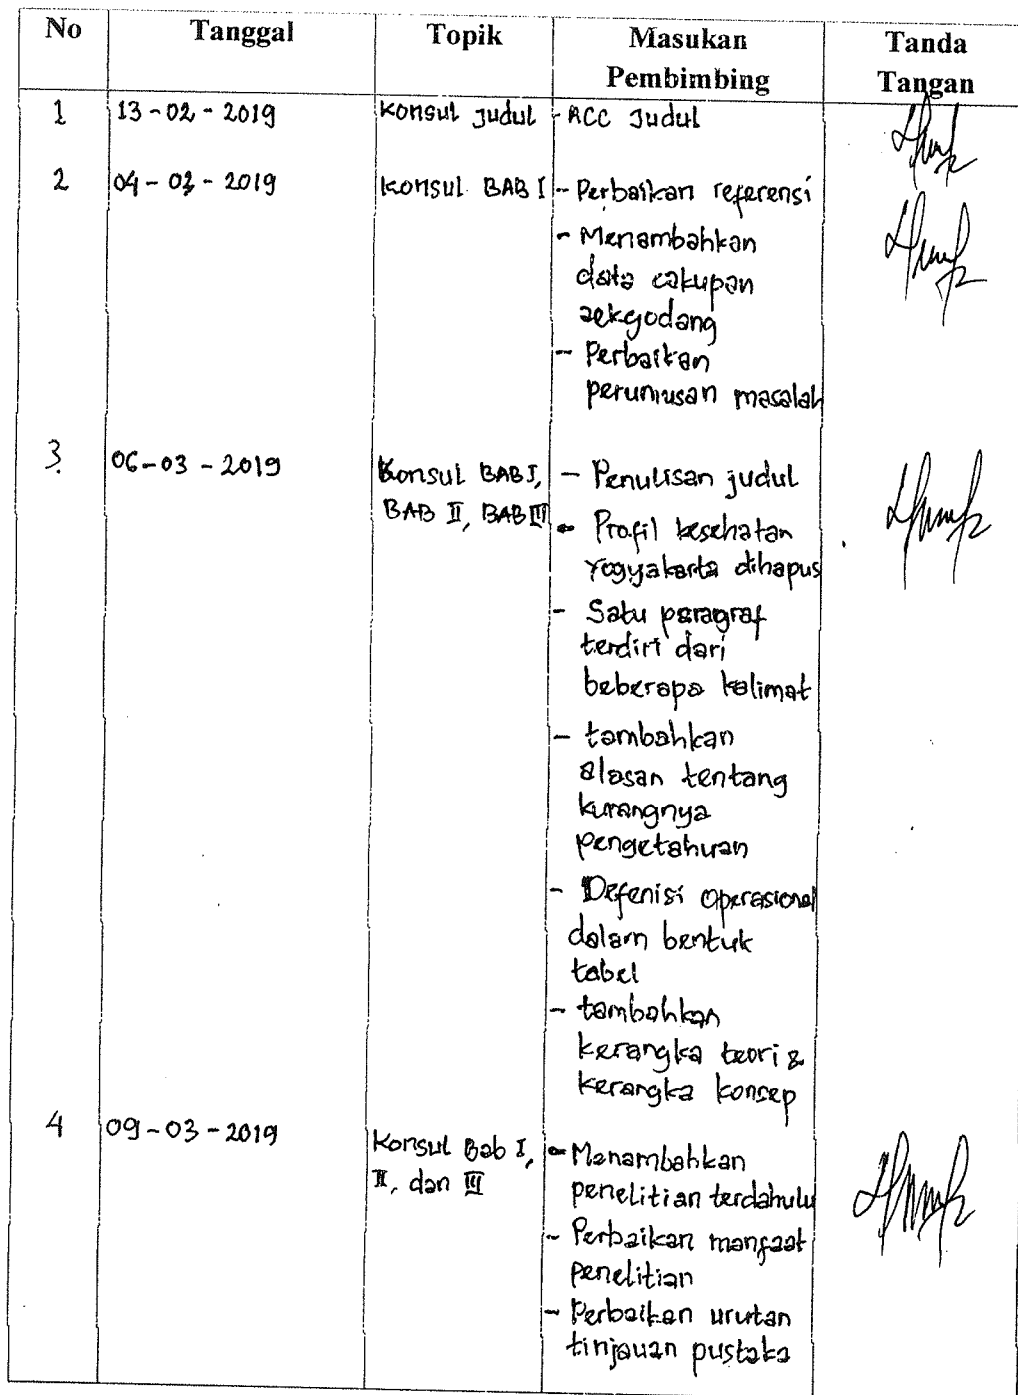 No Tanggal Topik Masukan Pembimbing Tanda Tangan
1 13-02-2019 Konsul Judul - ACC Judul
2 04-03-2019 Konsul BAB I - Perbaikan referensi
- Menambahkan
data cakupan
aekgodang
- Perbaikan
perumusan masalah
3. 06-03-2019 Konsul BAB I, - Penulisan judul
BAB II, BAB III - Profil kesehatan
Yogyakarta dihapus
- Satu paragraf
terdiri dari
beberapa kalimat
- tambahkan
alasan tentang
kurangnya
pengetahuan
- Defenisi Operasional
dalam bentuk
tabel
- tambahkan
kerangka teori &
kerangka konsep
4 09-03-2019 Konsul Bab I, - Menambahkan
II, dan III penelitian terdahulu
- Perbaikan manfaat
penelitian
- Perbaikan urutan
tinjauan pustaka